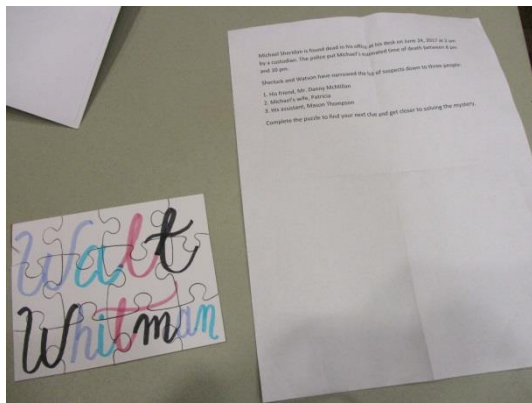 Michael Sheridan is found dead in his office at his desk on June 24, 2017 at 2 am
by a custodian. The police put Michael's estimated time of death between 8 pm
and 10 pm.
Sherlock and Watson have narrowed the list of suspects down to three people:
1. His friend, Mr. Danny McMillan
2. Michael's wife, Patricia
3. His assistant, Mason Thompson
Complete the puzzle to find your next clue and get closer to solving the mystery.
Walt
Whitman